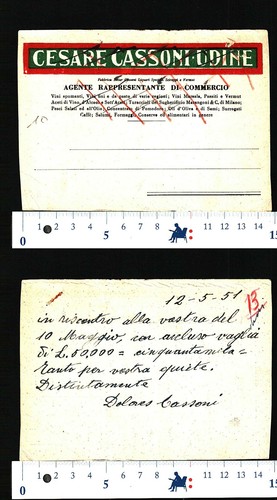 CESARE CASSONI-UDINE
AGENTE RAPPRESENTANTE DI COMMERCIO
Vini spumanti, Vini fini e da pasto di varie regioni; Vini Marsala, Passiti e Vermut
Aceti di Vino, d'Alcool e Sott'Aceti; Turaccioli del Sugherificio Marangoni & C. di Milano;
Pesci Salati ed all'Olio; Concentrato di Pomodoro; Olî d'Oliva e di Semi; Surrogati
Caffè; Salumi, Formaggi, Conserve ed alimentari in genere
10
0 1 2 3 4 5 6 7 8 9 10 11 12 13 14 15
12-5-51
13
in riscontro alla vostra del
10 Maggio, con accluso vaglia
di L. 50,000 = cinquantamila =
tanto per vostra quiete.
Distintamente
Dolores Cassoni
0 1 2 3 4 5 6 7 8 9 10 11 12 13 14 15